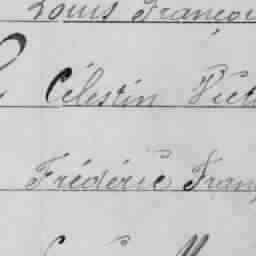 Louis Françoi
Célestin Vict
Frédéric Franç